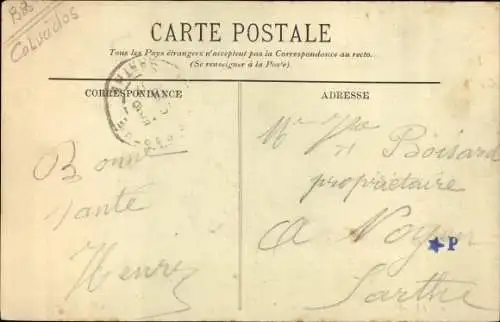 Calvados
CARTE POSTALE
Tous les Pays étrangers n'acceptent pas la Correspondance au recto.
(Se renseigner à la Poste).
CORRESPONDANCE
ADRESSE
Bonne
santé
Henri
Boisard
propriétaire
A Noyen
P
Sarthe